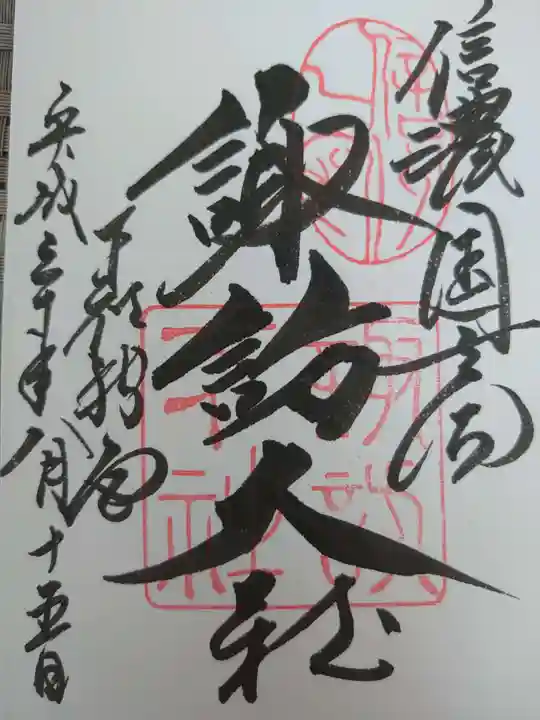 信濃國一之宮
諏訪大社
下社秋宮
平成三十年八月十五日
諏訪
下社